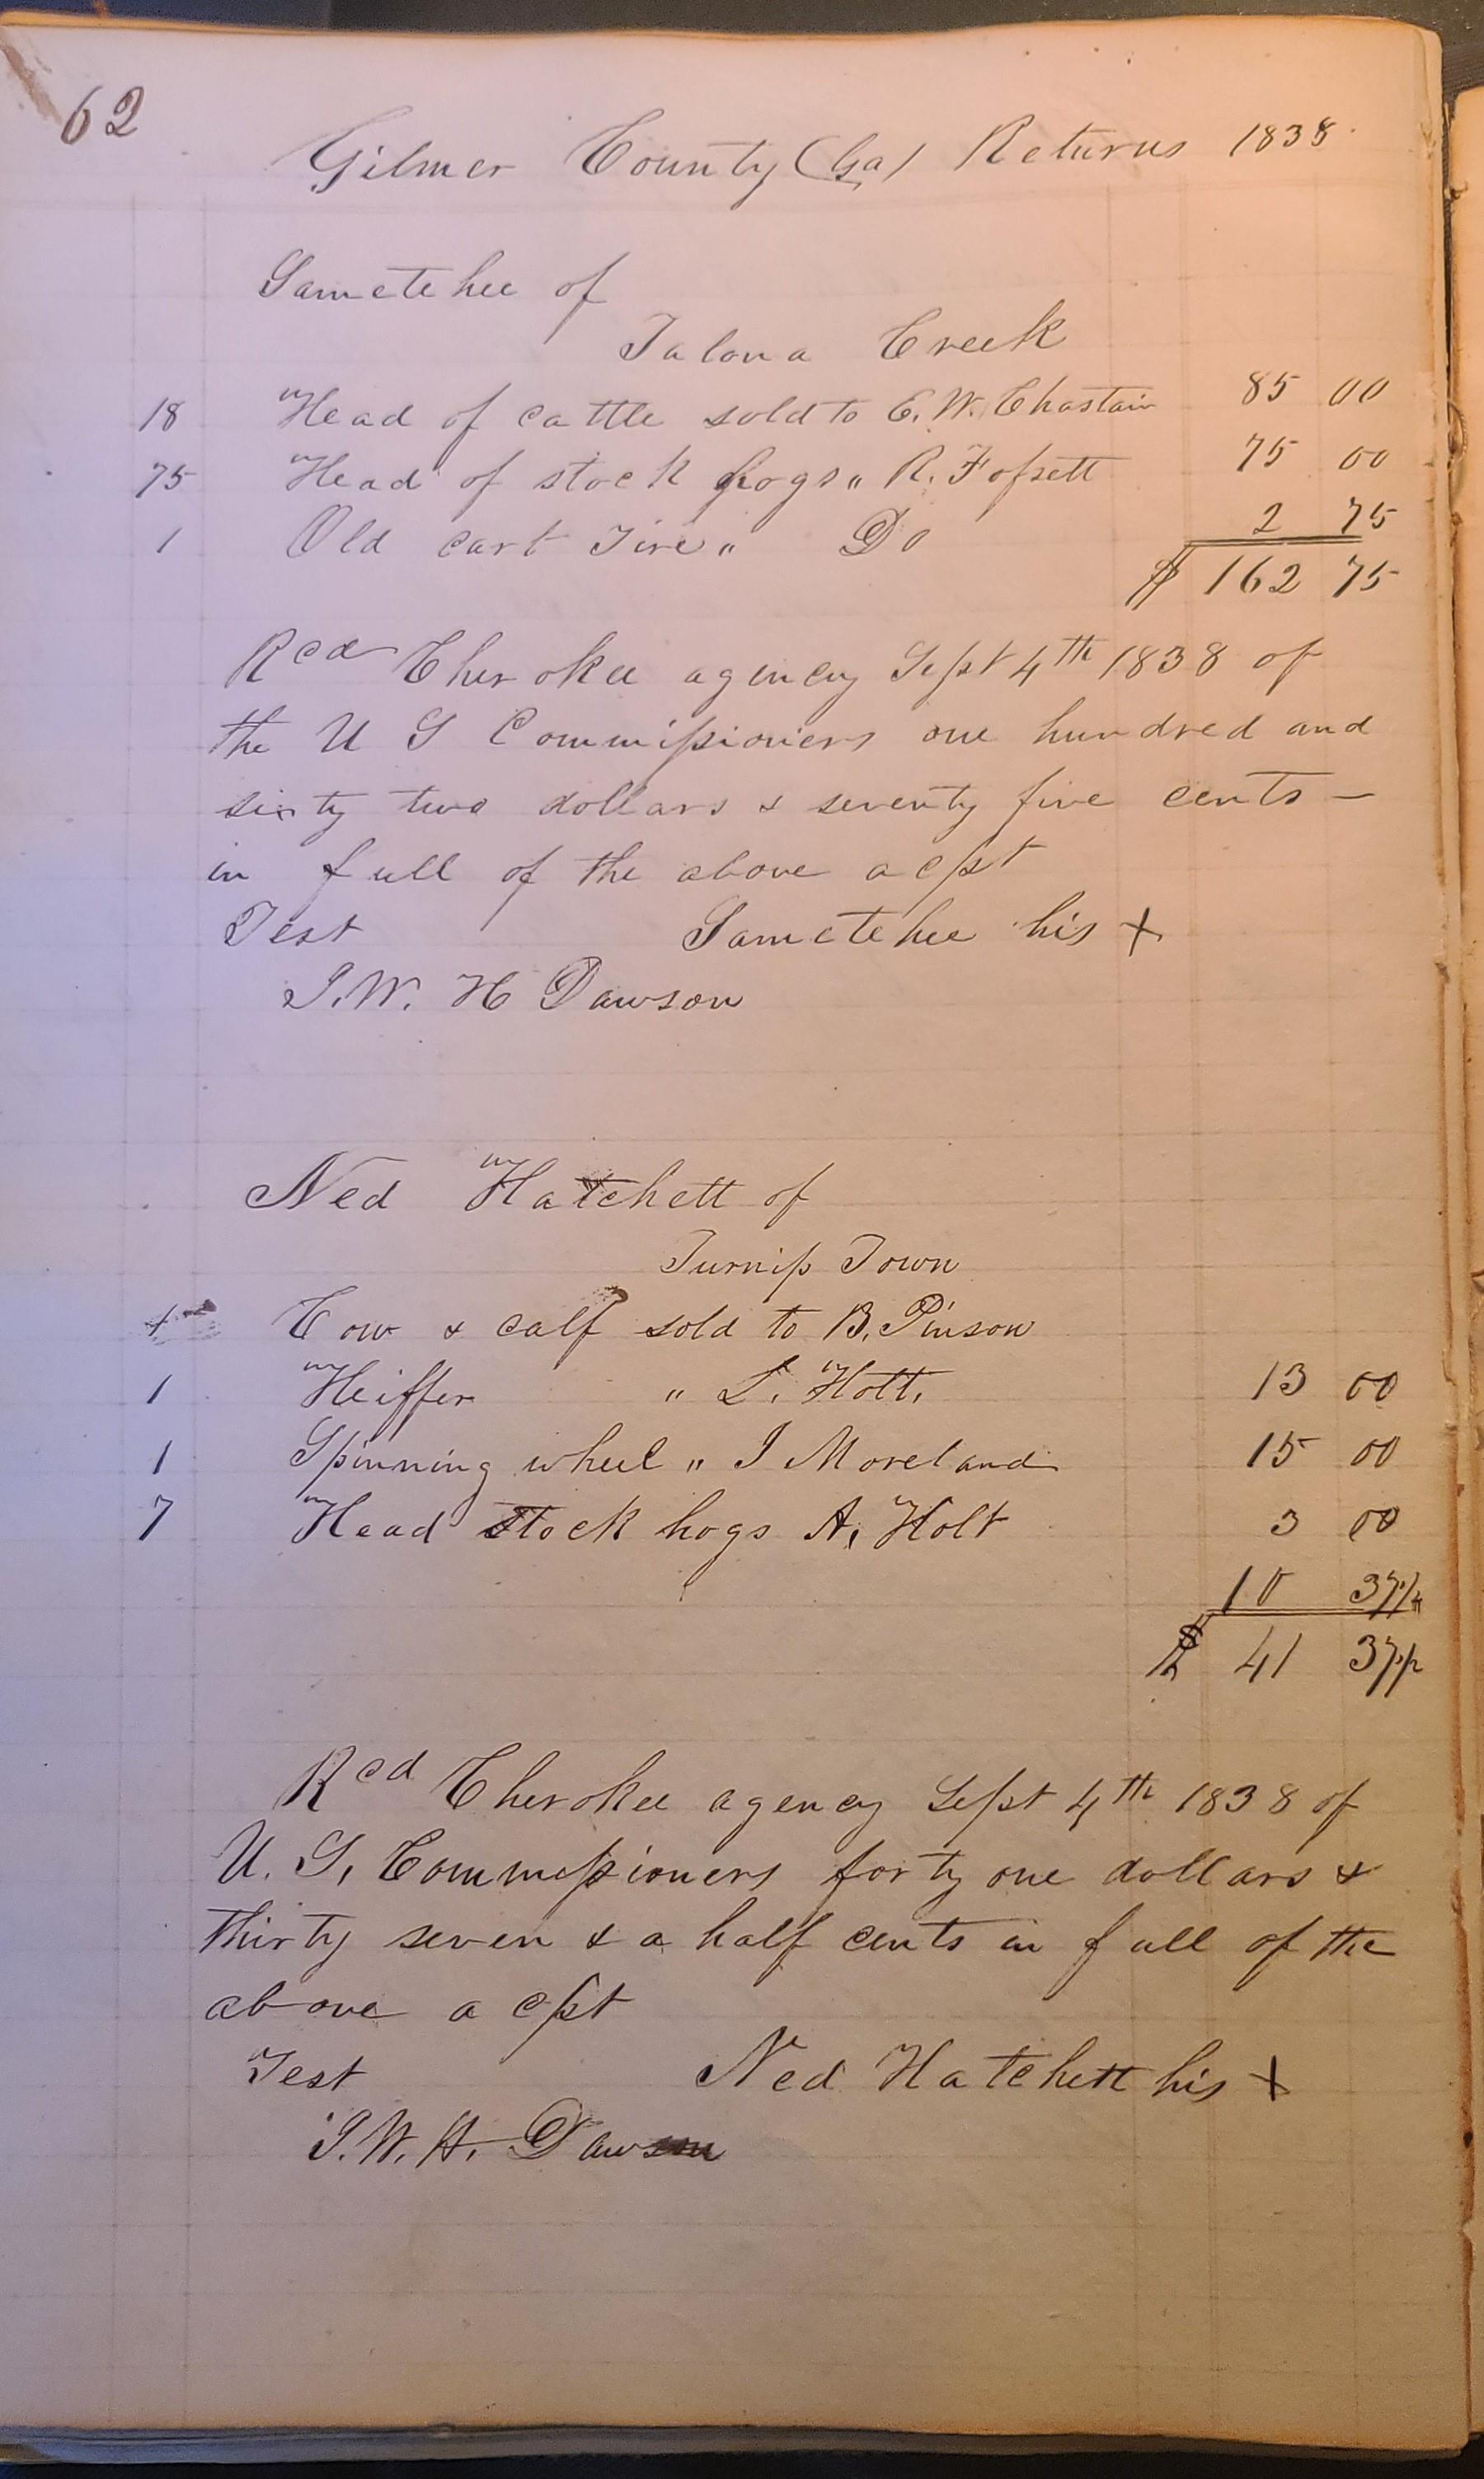 62
Gilmer County (Ga) Returns 1838
Sametehee of
Talona Creek
18 Head of cattle sold to E. W. Chastain 85 00
75 Head of stock hogs " R. Fossett 75 00
1 Old cart Tire " Do 2 75
$ 162 75
Rcd Cherokee agency Sept 4th 1838 of
the U S Commissioners one hundred and
sixty two dollars & seventy five cents —
in full of the above acpt
Test Sametehee his X
J. W. H Dawson
Ned Hatchett of
Turnip Town
Cow & calf sold to B. Pinson
1 Heiffer " L. Holt. 13 00
1 Spinning wheel " J Moreland 15 00
7 Head Stock hogs A. Holt 3 00
10 37½
$ 41 37½
Rcd Cherokee agency Sept 4th 1838 of
U. S. Commissioners forty one dollars &
thirty seven & a half cents in full of the
above acpt
Test Ned Hatchett his X
J. W. H. Dawson